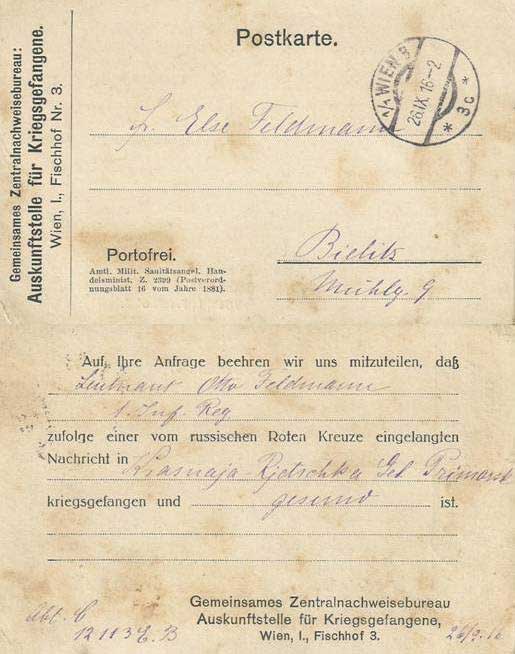 Gemeinsames Zentralnachweisebureau:
Auskunftstelle für Kriegsgefangene.
Wien, I., Fischhof Nr. 3.
Postkarte.
1/1 WIEN 9
26.IX.16-2
* 3c *
Fr. Else Feldmann
Portofrei.
Amtl. Milit. Sanitätsangel. Han-
delsminist. Z. 2399 (Postverord-
nungsblatt 16 vom Jahre 1881).
Bielitz
Mühlg. 9
Auf Ihre Anfrage beehren wir uns mitzuteilen, daß
Lieutnant Otto Feldmann
1. Inf. Reg
zufolge einer vom russischen Roten Kreuze eingelangten
Nachricht in Krasnaja-Rjetschka Geb. Primorsk
kriegsgefangen und gesund ist.
Gemeinsames Zentralnachweisebureau
Auskunftstelle für Kriegsgefangene,
Wien, I., Fischhof 3.
Abt. C
12113 E. B
26/9.16